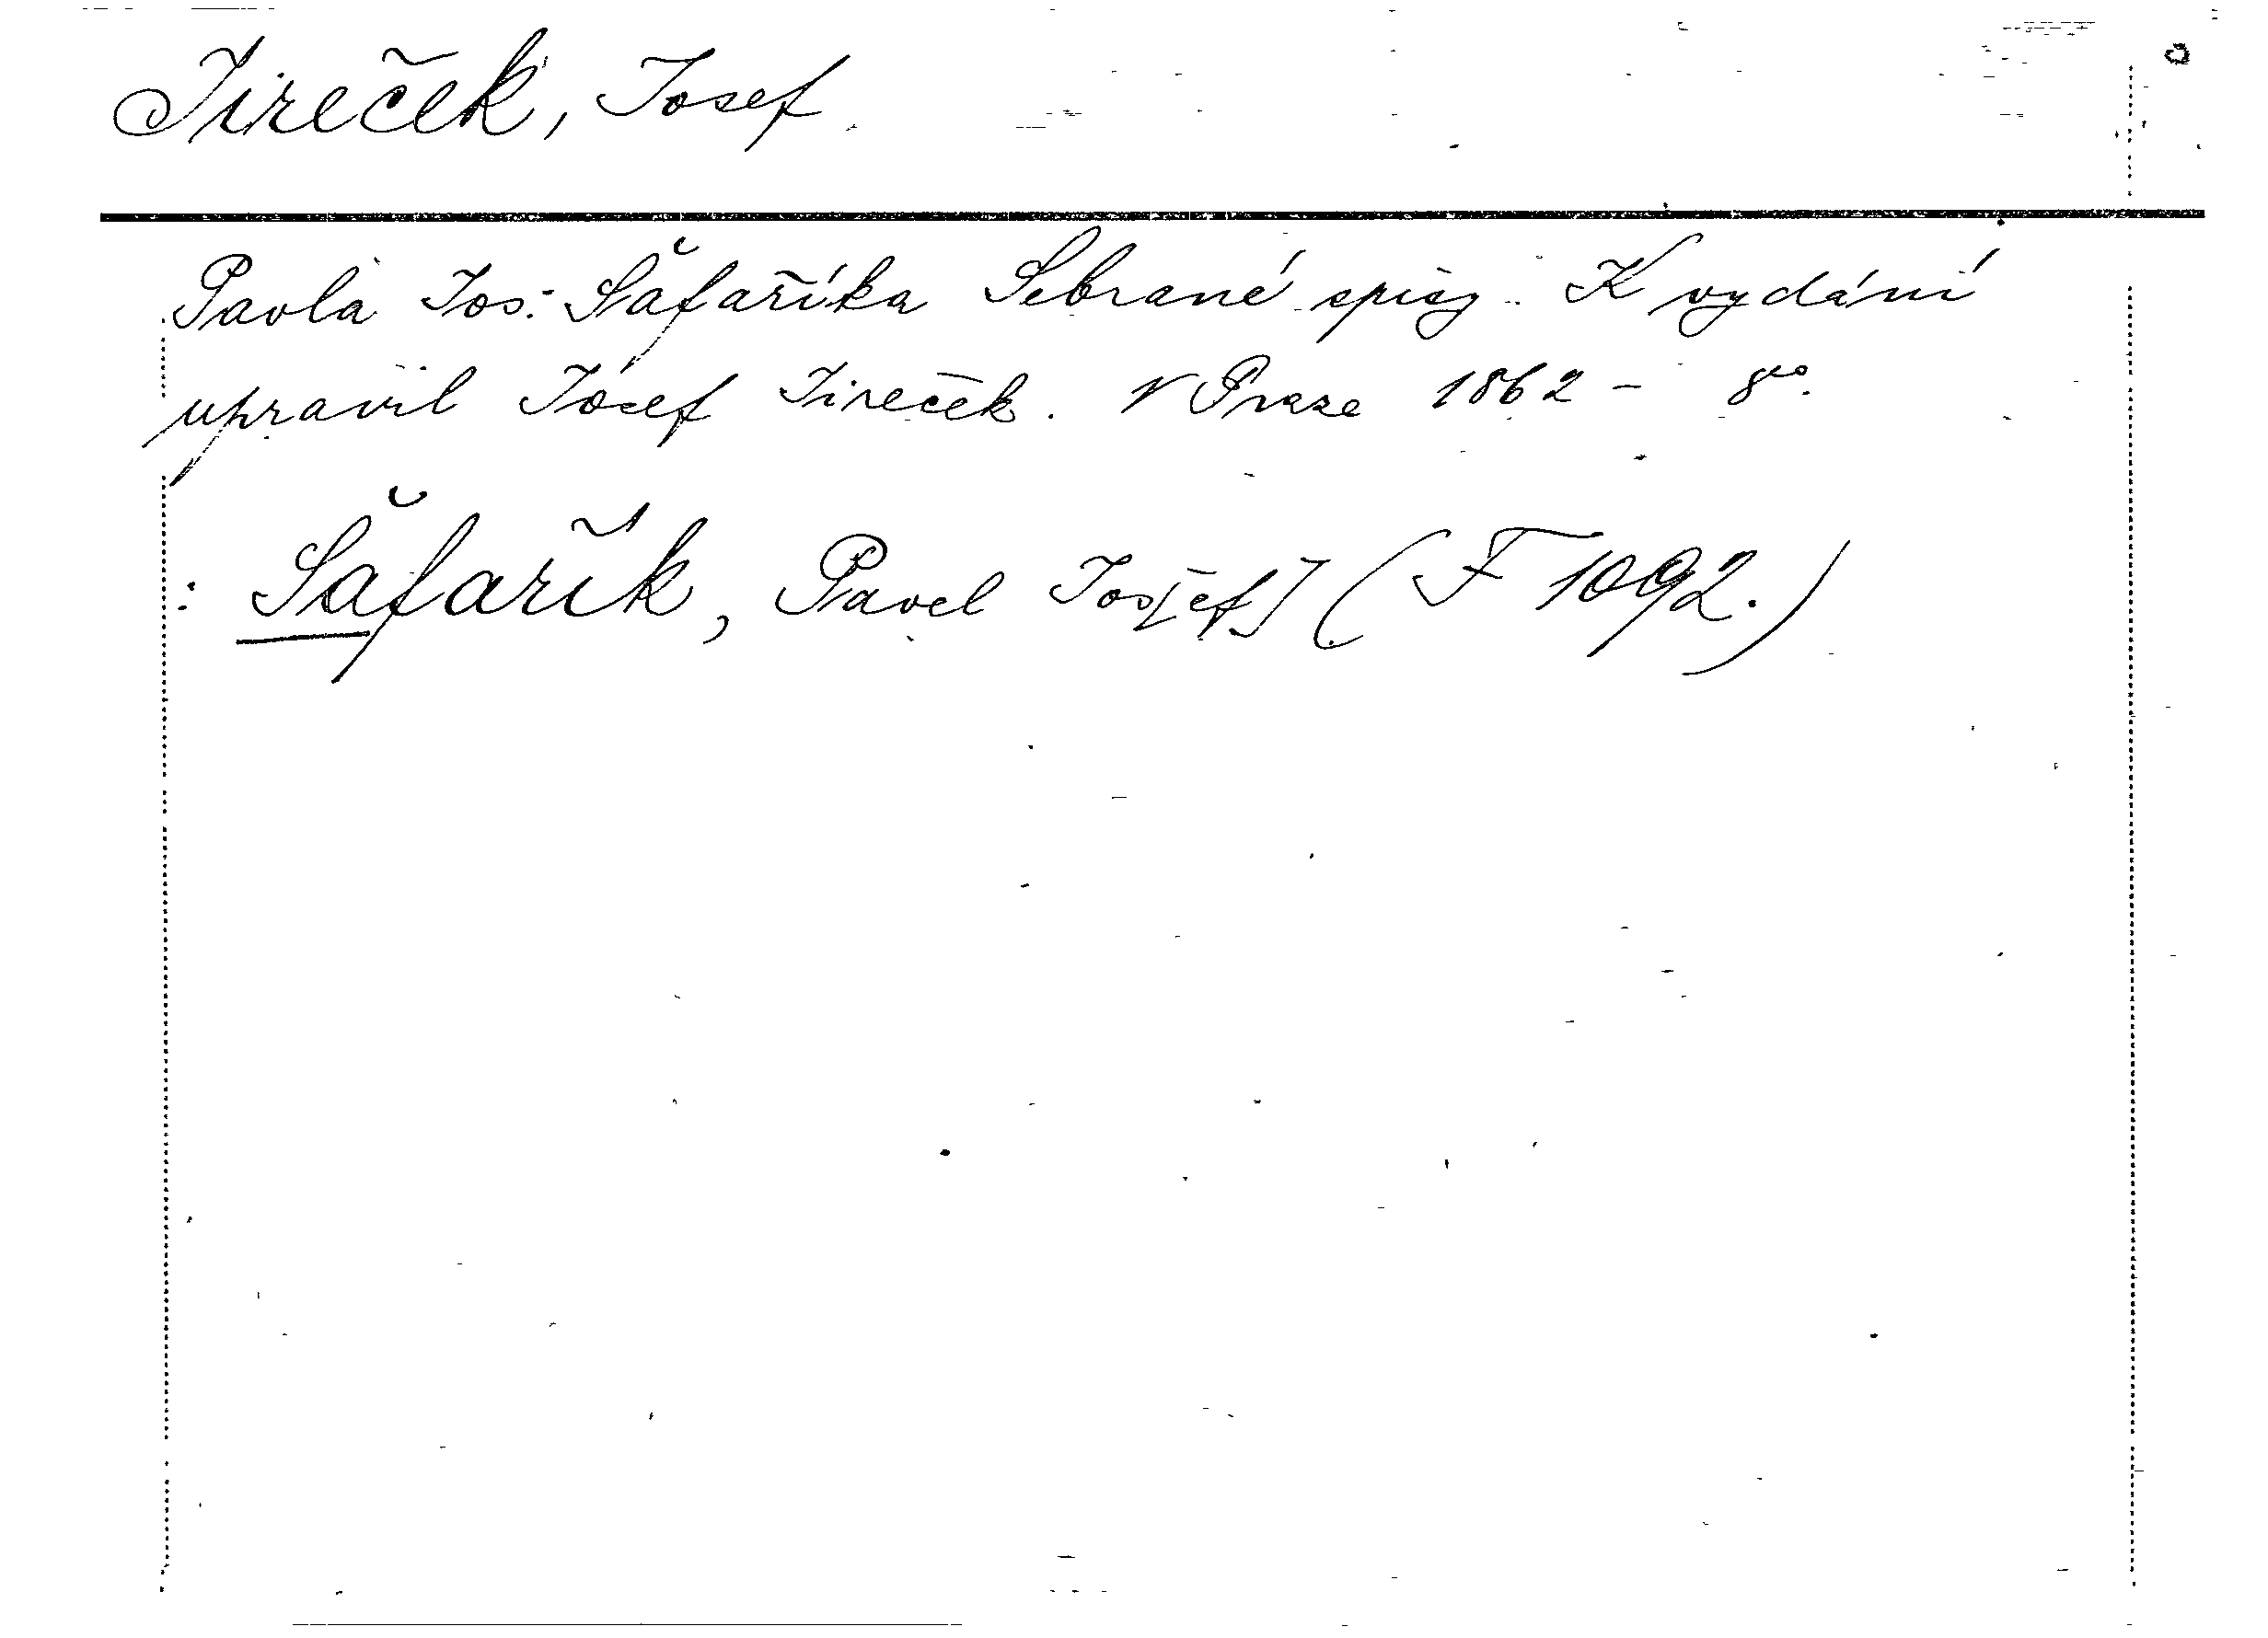 Jireček, Josef
Pavla Jos. Šafaříka Sebrané spisy. K vydání
upravil Josef Jireček. V Praze 1862 – 8vo.
: Šafařík, Pavel Jos[ef] (F 1092.)